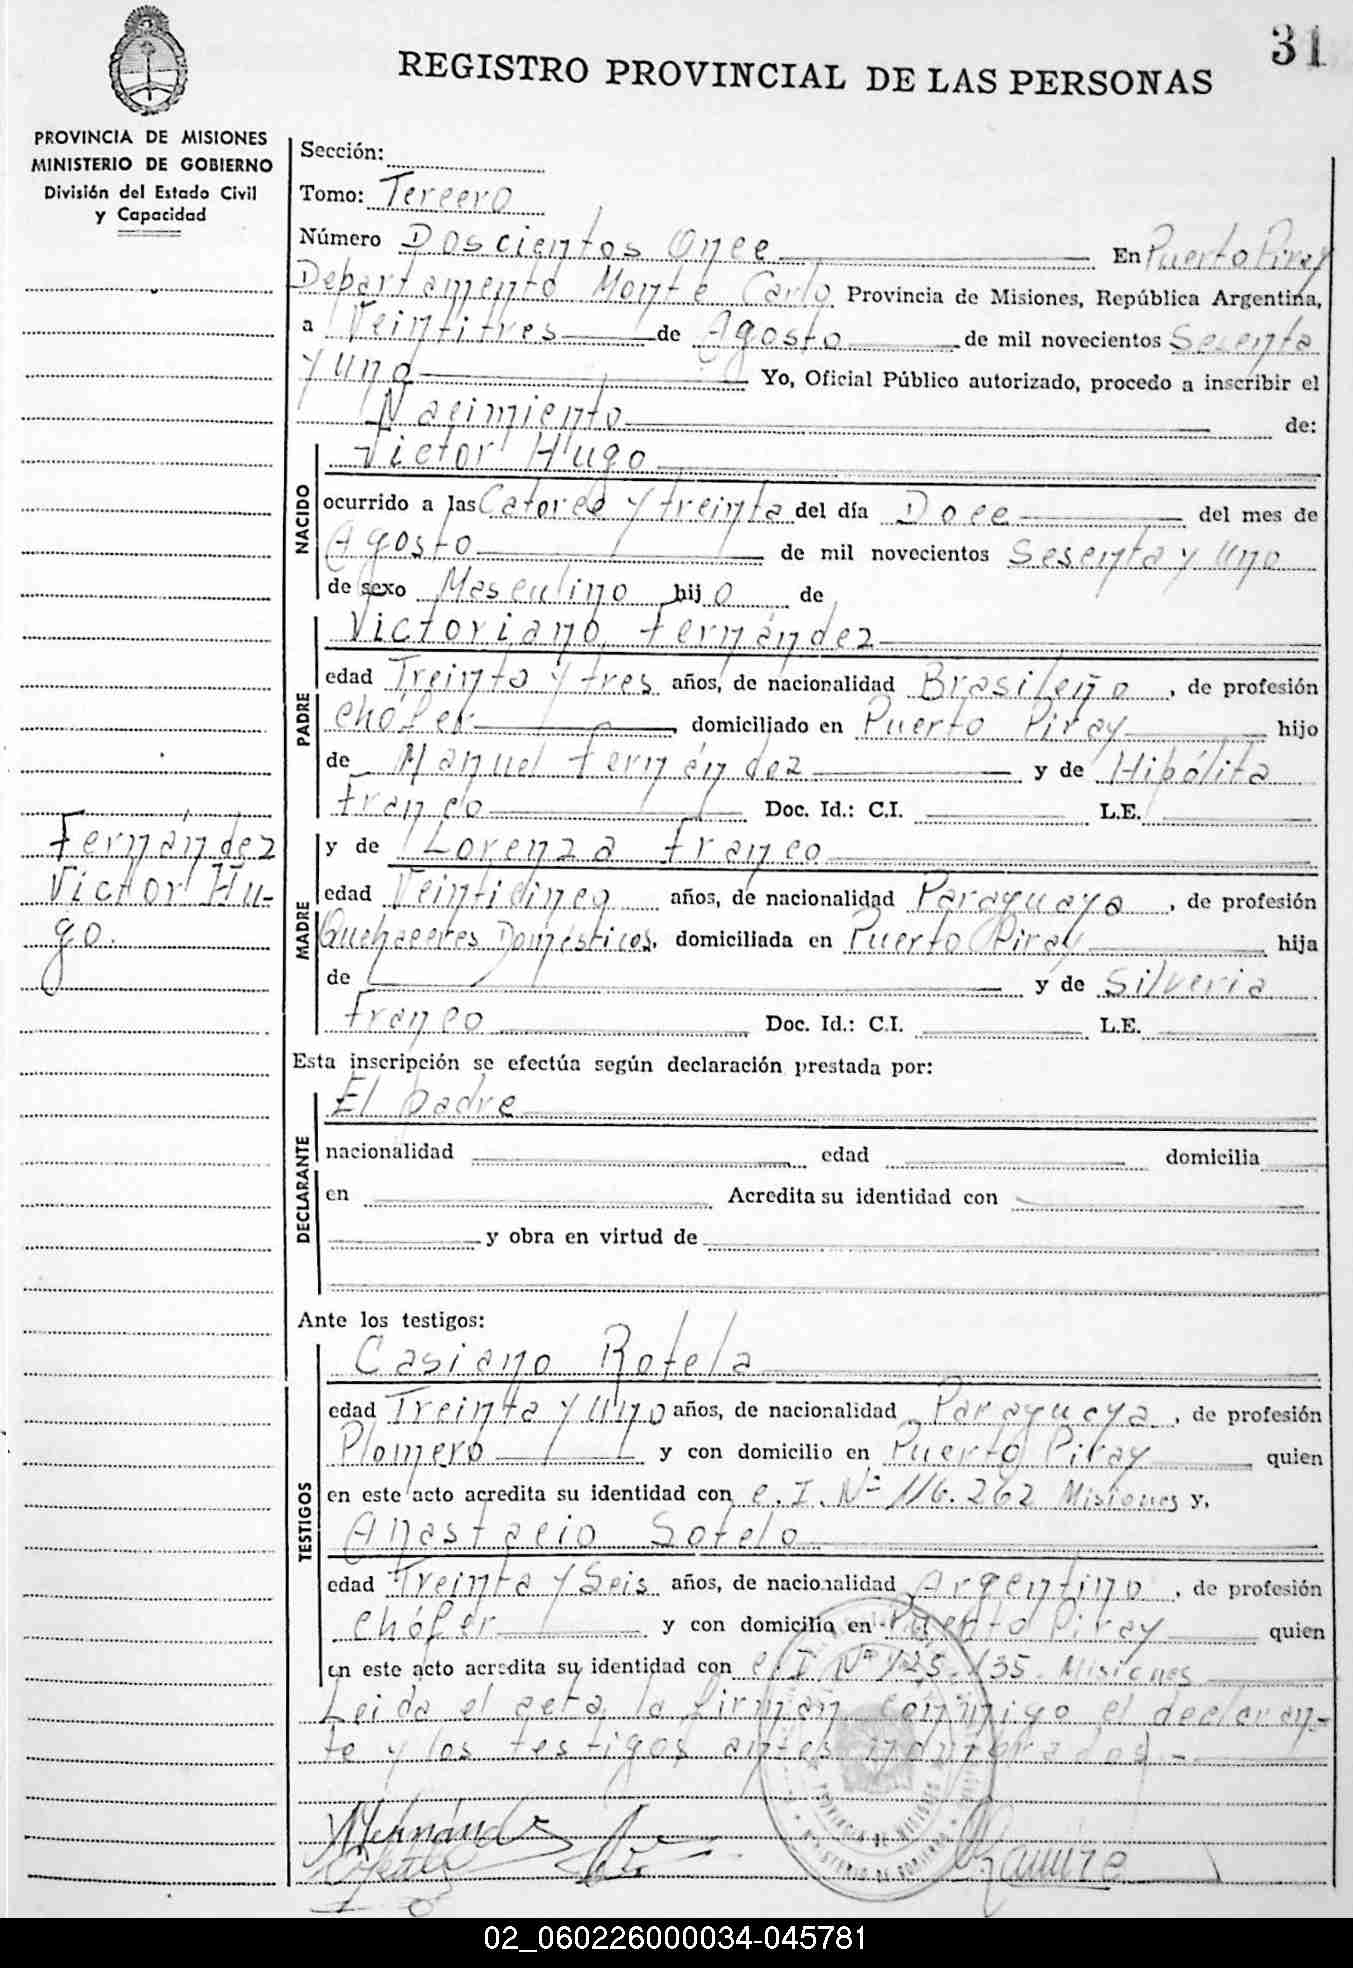 31
REGISTRO PROVINCIAL DE LAS PERSONAS
PROVINCIA DE MISIONES
MINISTERIO DE GOBIERNO
División del Estado Civil
y Capacidad
Fernández
Victor Hu-
go.
Sección:
Tomo: Tercero
Número Doscientos Once En Puerto Piray
Departamento Monte Carlo Provincia de Misiones, República Argentina,
a Veintitres de Agosto de mil novecientos Sesenta
y uno Yo, Oficial Público autorizado, procedo a inscribir el
Nacimiento de:
NACIDO
Victor Hugo
ocurrido a las Catorce y treinta del día Doce del mes de
Agosto de mil novecientos Sesenta y Uno
de sexo Masculino hijo de
PADRE
Victoriano Fernández
edad Treinta y tres años, de nacionalidad Brasileño, de profesión
chófer, domiciliado en Puerto Piray hijo
de Manuel Fernández y de Hipólita
Franco Doc. Id.: C.I. L.E.
MADRE
y de Lorenza Franco
edad Veinticinco años, de nacionalidad Paraguaya, de profesión
Quehaceres Domésticos, domiciliada en Puerto Piray hija
de y de Silveria
Franco Doc. Id.: C.I. L.E.
Esta inscripción se efectúa según declaración prestada por:
DECLARANTE
El padre
nacionalidad edad domicilia
en Acredita su identidad con
y obra en virtud de
Ante los testigos:
TESTIGOS
Casiano Rotela
edad Treinta y Uno años, de nacionalidad Paraguaya, de profesión
Plomero y con domicilio en Puerto Piray quien
en este acto acredita su identidad con C.I. Nº 116.262 Misiones y,
Anastacio Sotelo
edad Treinta y Seis años, de nacionalidad Argentino, de profesión
chófer y con domicilio en Puerto Piray quien
en este acto acredita su identidad con C.I. Nº 125.135. Misiones
Leida el acta la firman conmigo el declaran-
te y los testigos antes nombrados.-
VFernández
Ramire
PROVINCIA DE MISIONES
MINISTERIO DE GOBIERNO
02_060226000034-045781